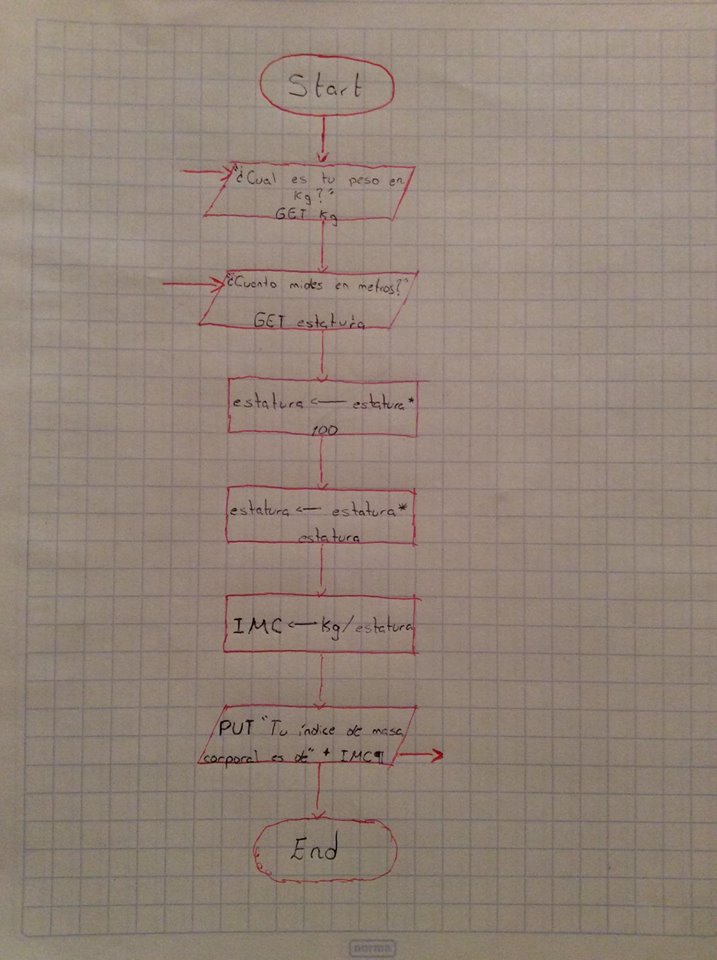 Start
"¿Cual es tu peso en
kg?"
GET kg
"¿Cuanto mides en metros?"
GET estatura
estatura ← estatura*
100
estatura ← estatura*
estatura
IMC ← kg/estatura
PUT "Tu índice de masa
corporal es de" + IMC¶
End
norma